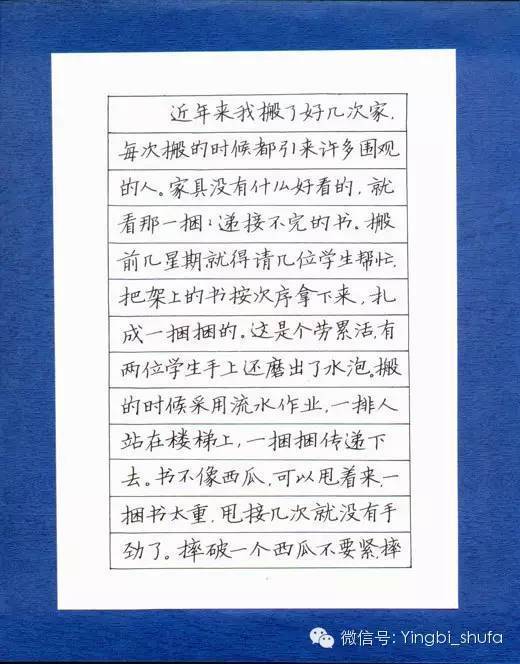 近年来我搬了好几次家.
每次搬的时候都引来许多围观
的人。家具没有什么好看的,就
看那一捆:递接不完的书。搬
前几星期,就得请几位学生帮忙.
把架上的书按次序拿下来,扎
成一捆捆的。这是个劳累活,有
两位学生手上还磨出了水泡。搬
的时候采用流水作业,一排人
站在楼梯上,一捆捆传递下
去。书不像西瓜,可以甩着来,一
捆书太重,甩接几次就没有手
劲了。摔破一个西瓜不要紧,摔
微信号: Yingbi_shufa